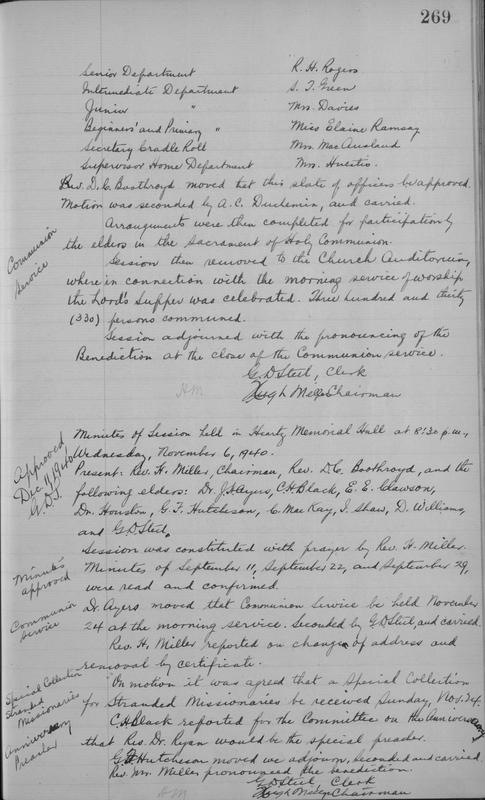 269
Senior Department R. H. Rogers
Intermediate Department S. T. Green
Junior " Mrs. Davies
Beginners' and Primary " Miss Elaine Ramsay
Secretary Cradle Roll Mrs. MacAusland
Supervisor Home Department Mrs. Huestis.
Rev. D. C. Boothroyd moved that this slate of officers be approved.
Motion was seconded by A. C. Duchemin, and carried.
Arrangements were then completed for participation by
the elders in the Sacrament of Holy Communion.
Communion
Service
Session then removed to the Church Auditorium,
where in connection with the morning service of worship
the Lord's Supper was celebrated. Three hundred and thirty
(330) persons communed.
Session adjourned with the pronouncing of the
Benediction at the close of the Communion service.
G. D. Steel, Clerk
Hugh Miller Chairman
H.M.
Minutes of Session held in Heartz Memorial Hall at 8:30 p.m.,
Wednesday, November 6, 1940.
Approved
Dec. 11, 1940
G.D.S.
Present: Rev. H. Miller, Chairman, Rev. D.C. Boothroyd, and the
following elders: Dr. J. F. Ayers, C. H. Black, E. E. Clawson,
Dr. Houston, G. F. Hutcheson, C. MacKay, I. Shaw, D. Williams,
and G. D. Steel.
Session was constituted with prayer by Rev. H. Miller.
Minutes
approved
Minutes of September 11, September 22, and September 29,
were read and confirmed.
Communion
Service
Dr. Ayers moved that Communion Service be held November
24 at the morning service. Seconded by G. D. Steel, and carried.
Rev. H. Miller reported on changes of address and
removal by certificate.
Special Collection
Stranded
Missionaries
On motion it was agreed that a Special Collection
for Stranded Missionaries be received Sunday, Nov. 24.
Anniversary
Preacher
C. H. Black reported for the Committee on the Anniversary
that Rev. Dr. Ryan would be the special preacher.
G. F. Hutcheson moved we adjourn, seconded and carried.
Rev. Mr. Miller pronounced the benediction.
G. D. Steel Clerk
Hugh Miller Chairman
H.M.